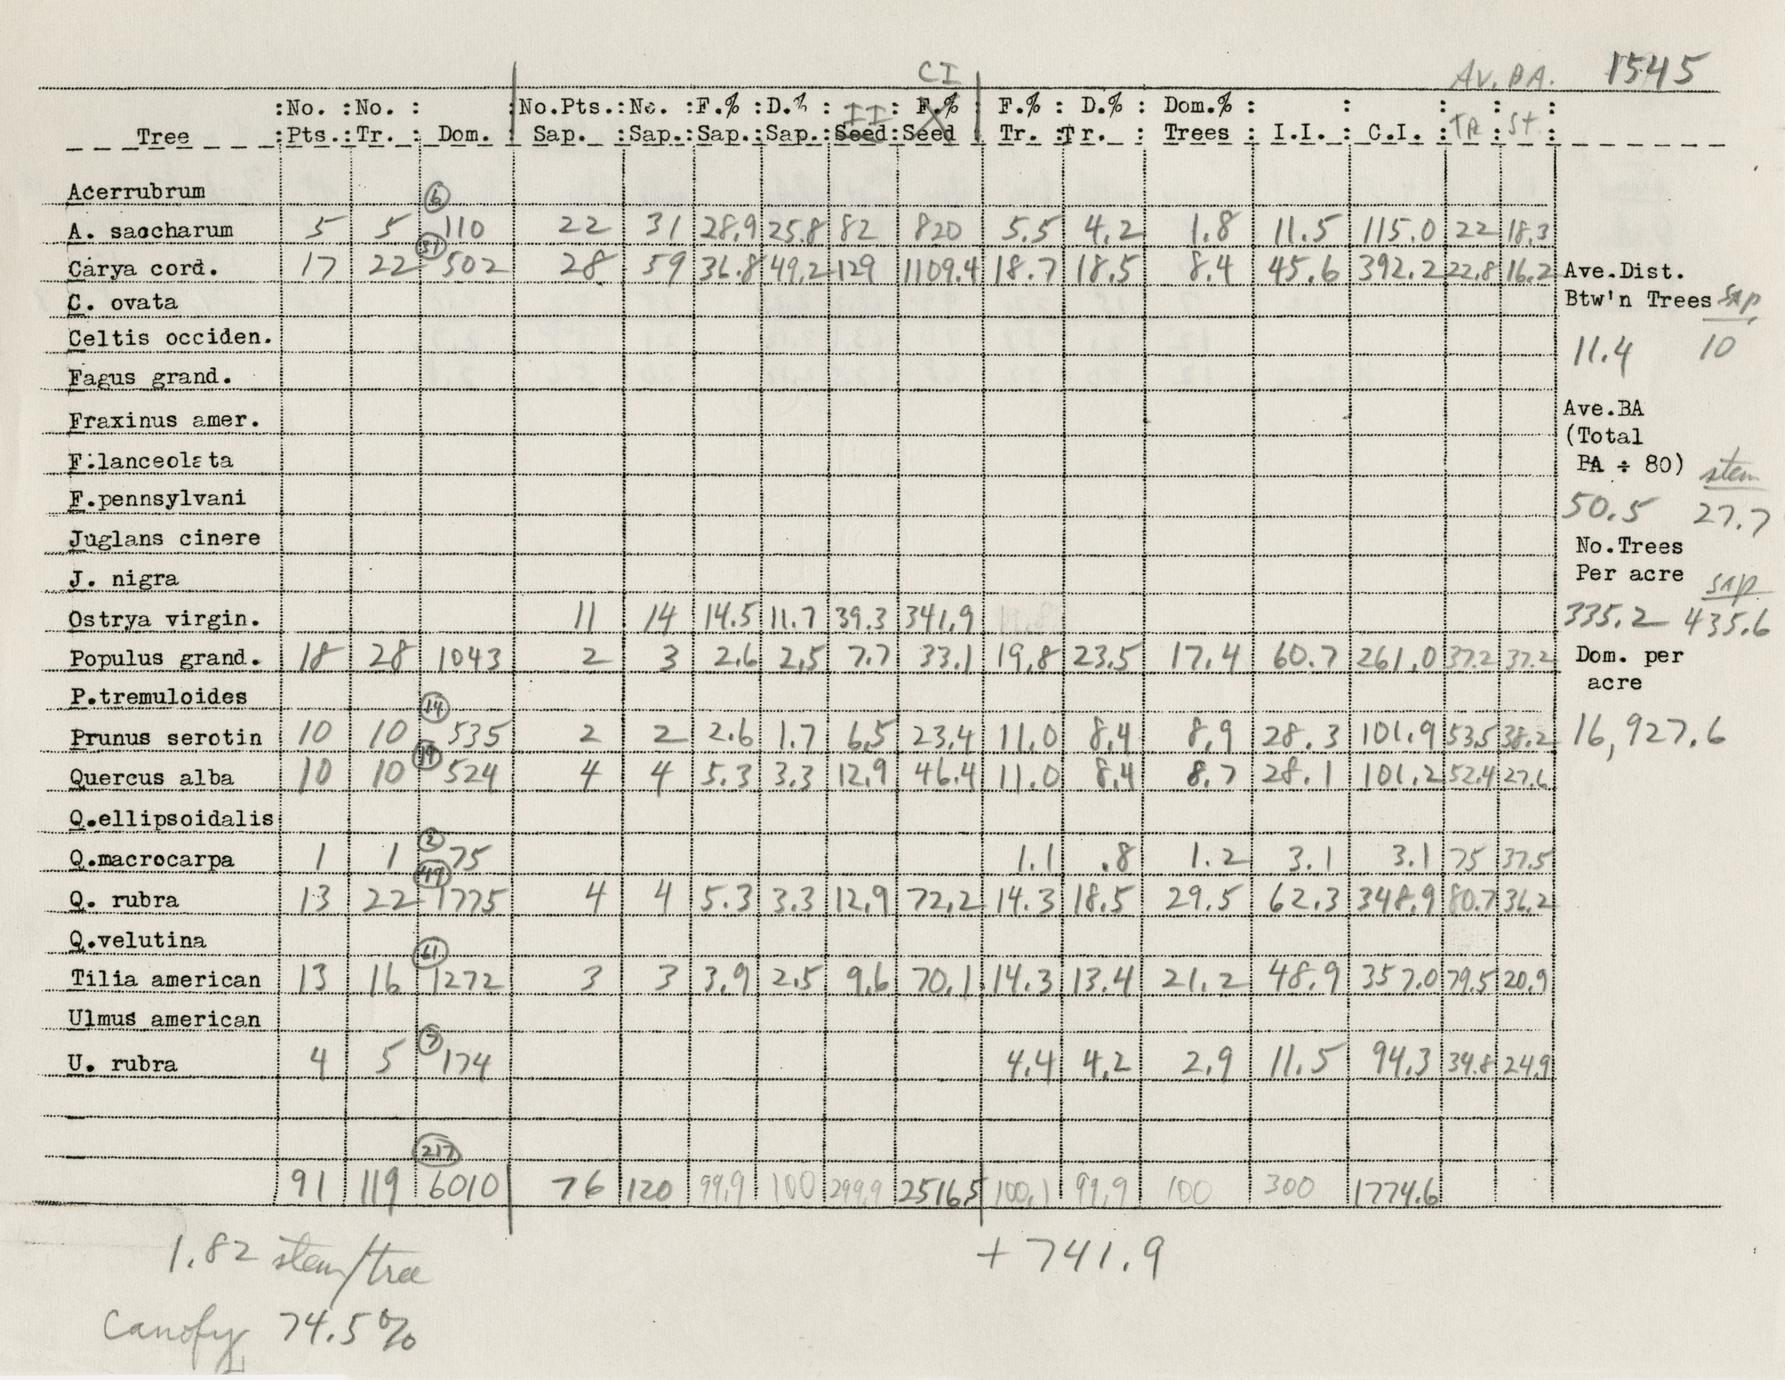 Av. BA. 1545
CI
:No. :No. : :No.Pts.:No. :F.% :D.% : II : F.% F.% : D.% : Dom.% : : : : :
Tree :Pts.:Tr. : Dom. Sap. :Sap.:Sap.:Sap.:Seed:Seed Tr. :Tr. : Trees : I.I. : C.I. :TR : St :
Acerrubrum
A. saccharum 5 5 (6) 110 22 31 28.9 25.8 82 820 5.5 4.2 1.8 11.5 115.0 22 18.3
Carya cord. 17 22 (31) 502 28 59 36.8 49.2 129 1109.4 18.7 18.5 8.4 45.6 392.2 22.8 16.2
C. ovata
Celtis occiden.
Fagus grand.
Fraxinus amer.
F.lanceolata
F.pennsylvani
Juglans cinere
J. nigra
Ostrya virgin. 11 14 14.5 11.7 39.3 341.9
Populus grand. 18 28 1043 2 3 2.6 2.5 7.7 33.1 19.8 23.5 17.4 60.7 261.0 37.2 37.2
P.tremuloides
Prunus serotin 10 10 (14) 535 2 2 2.6 1.7 6.5 23.4 11.0 8.4 8.9 28.3 101.9 53.5 38.2
Quercus alba 10 10 (19) 524 4 4 5.3 3.3 12.9 46.4 11.0 8.4 8.7 28.1 101.2 52.4 27.6
Q.ellipsoidalis
Q.macrocarpa 1 1 (2) 75 1.1 .8 1.2 3.1 3.1 75 37.5
Q. rubra 13 22 (49) 1775 4 4 5.3 3.3 12.9 72.2 14.3 18.5 29.5 62.3 348.9 80.7 36.2
Q.velutina
Tilia american 13 16 (61) 1272 3 3 3.9 2.5 9.6 70.1 14.3 13.4 21.2 48.9 357.0 79.5 20.9
Ulmus american
U. rubra 4 5 (7) 174 4.4 4.2 2.9 11.5 94.3 34.8 24.9
(217)
91 119 6010 76 120 99.9 100 299.9 2516.5 100.1 99.9 100 300 1774.6
Ave.Dist.
Btw'n Trees Sap
11.4 10
Ave.BA
(Total
BA ÷ 80) stem
50.5 27.7
No.Trees
Per acre sap
335.2 435.6
Dom. per
acre
16,927.6
+ 741.9
1.82 stem/tree
Canopy 74.5%